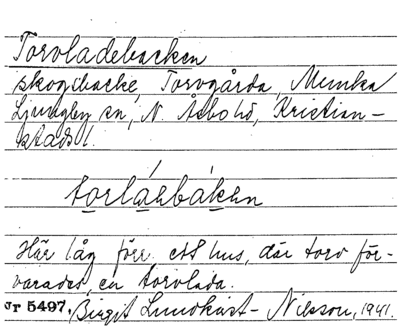 Torvladebacken
skogsbacke, Torvgårda, Munka
Ljungby sn, N. Åsbo hd, Kristian-
stads l.
torláebáken
Här låg förr ett hus, där torv för-
varades, en torvlada.
Jr 5497. Birgit Lundkvist-Nilsson, 1941.